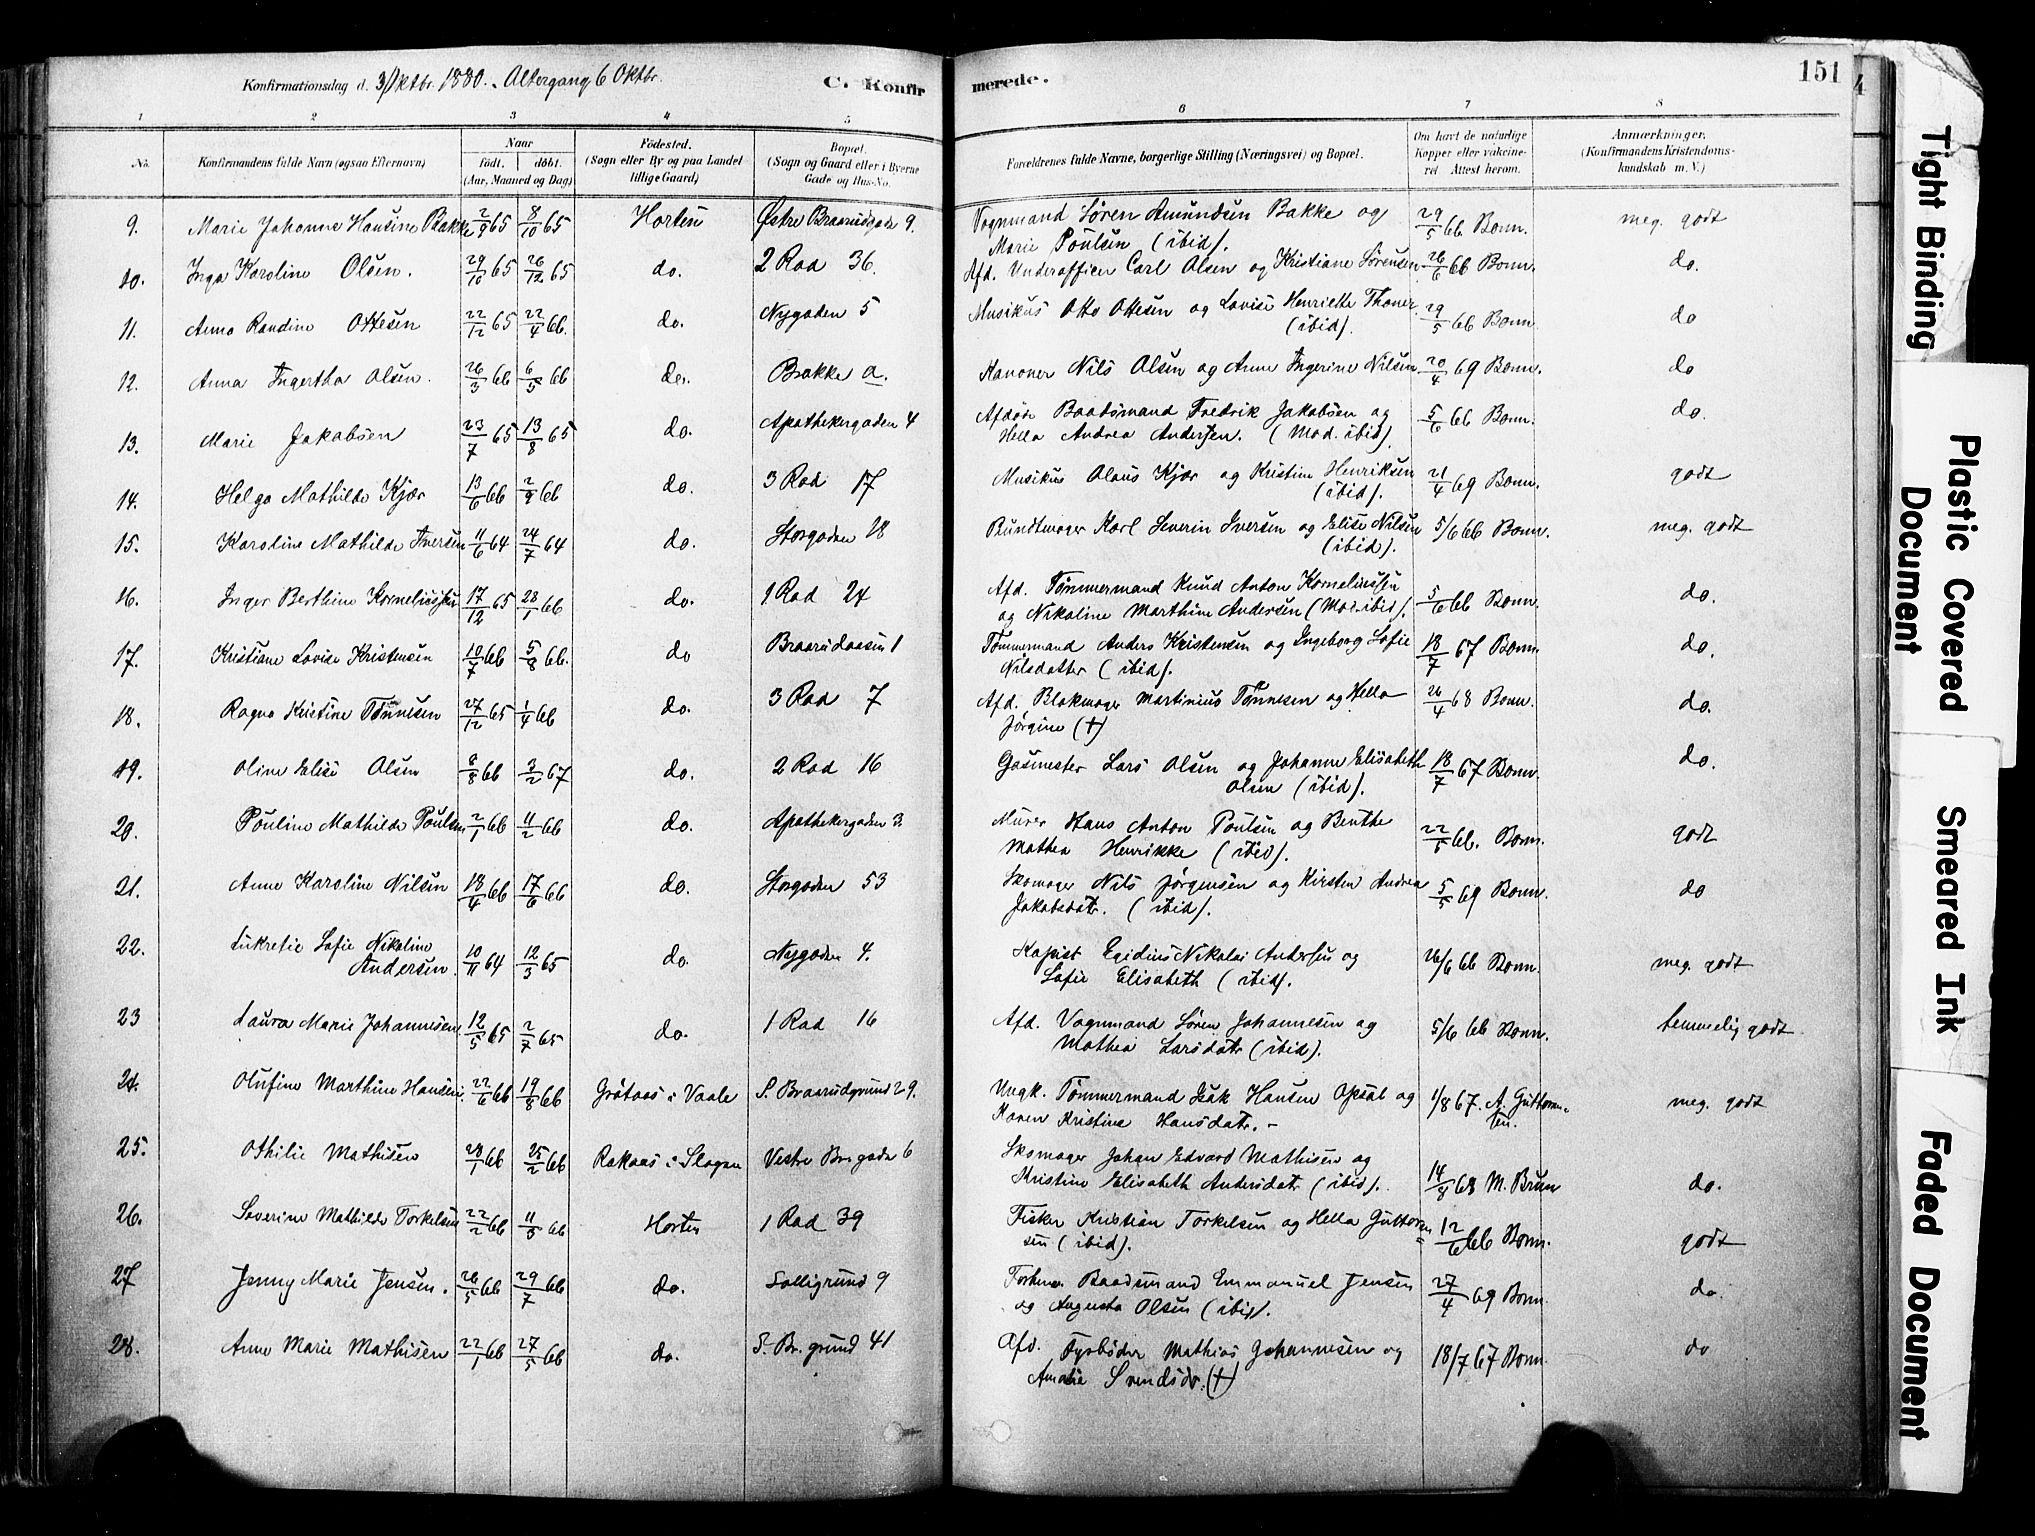 Konfirmationsdag d. 3/Oktbr. 1880. Altergang 6 Oktbr.
C. Konfirmerede.
151
4
1 2 3 4 5 6 7 8
No.
Konfirmandens fulde Navn (ogsaa Efternavn)
Naar
födt. döbt.
(Aar, Maaned og Dag)
Födested.
(Sogn eller By og paa Landet
tillige Gaard)
Bopæl.
(Sogn og Gaard eller i Byerne
Gade og Hus-No.
Forældrenes fulde Navne, borgerlige Stilling (Næringsvei) og Bopæl.
Om havt de naturlige
Kopper eller vakcine-
ret Attest herom.
Anmærkninger.
(Konfirmandens Kristendoms-
kundskab m. V.)
9. Marie Johanne Hansine Bakke 2/9 65 8/10 65 Horten Østre Braarudgade 9. Vognmand Søren Amundsen Bakke og 29/5 66 Bonn. meg. godt
Marie Poulsen (ibid).
10. Inga Karoline Olsen. 29/10 65 26/12 65 do. 2 Rad 36. Afd. Underofficer Carl Olsen og Kristiane Sørensen 26/6 66 Bonn. do.
11. Anna Randine Ottesen 22/12 65 22/4 66. do. Nygaden 5 Musikus Otto Ottesen og Lovise Henriette Thoner. 29/5 66 Bonn. do
(ibid).
12. Anna Ingertha Olsen. 26/3 66 6/5 66 do. Brakke a. Kanoner Nils Olsen og Anne Ingerine Nilsen 20/4 69 Bonn. do
13. Marie Jakobsen 23/7 65 13/8 65 do. Apothekergaden 4 Afdøde Baadsmand Fredrik Jakobsen og 5/6 66 Bonn. do.
Hella Andrea Andersen. (Mod. ibid).
14. Helga Mathilde Kjær 13/6 66 2/9 66 do. 3 Rad 17 Musikus Olaus Kjær og Kristine Henriksen 21/4 69 Bonn. godt
(ibid).
15. Karoline Mathilde Iversen 11/6 64 24/7 64 do. Storgaden 18 Bundtmager Karl Severin Iversen og Elise Nilsen 5/6 66 Bonn. meg. godt
(ibid).
16. Inger Berthine Korneliussen 17/12 65 28/1 66 do. 1 Rad 24 Afd. Tømmermand Knud Anton Korneliussen 5/6 66 Bonn. do.
og Nikoline Marthine Andersen (Mod. ibid).
17. Kristiane Lovise Kristensen 10/7 66 5/8 66. do Braarudaasen 1 Tømmermand Anders Kristensen og Ingeborg Sofie 18/7 67 Bonn. do.
Nilsdatter (ibid).
18. Ragna Kristine Tønnesen 27/12 65 1/4 66 do. 3 Rad 7 Afd. Blokmager Martinius Tønnesen og Hella 26/4 68 Bonn. do.
Jørgine (†)
19. Oline Elise Olsen 8/8 66 3/2 67 do. 2 Rad 16 Gasmester Lars Olsen og Johanne Elisabeth 18/7 67 Bonn. do.
Olsen (ibid).
20. Pouline Mathilde Poulsen 2/1 66 11/2 66 do. Apothekergaden 3. Murer Hans Anton Poulsen og Benthe 22/5 66. Bonn. godt
Mathea Henrikke (ibid).
21. Anne Karoline Nilsen 18/4 66 17/6 66 do. Storgaden 53 Skomager Nils Jørgensen og Kirsten Andrea 5/5 69 Bonn. do
Jakobsdatr. (ibid).
22. Lukretie Sofie Nikoline
Andersen. 10/11 64 12/3 65 do. Nygaden 4. Kopist Egidius Nikolai Andersen og 26/6 66 Bonn. meg. godt
Sofie Elisabeth (ibid).
23 Laura Marie Johannesen. 12/5 65 2/7 65 do. 1 Rad 16 Afd. Vognmand Søren Johannesen og 5/6 66 Bonn. temmelig godt
Mathea Larsdatr (ibid).
24. Olufine Marthine Hansen. 22/6 66 19/8 66 Gråtaas i Vaale S. Braarudgrund 29. Ungk. Tømmermand Isak Hansen Opsal og 1/8 67. A. Guttorm- meg. godt
Karen Kristine Hansdatr. - sen.
25. Othilie Mathisen 28/1 66 25/2 66 Rakaas i Slagen Vestre Br.gade 6 Skomager Johan Edvard Mathisen og
Kristine Elisabeth Andersdatr (ibid). 14/8 68 M. Brun do.
26. Severine Mathilde Torkelsen 22/2 66 11/3 66 Horten 1 Rad 39 Fisker Kristian Torkelsen og Hella Guttorm- 12/6 66 Bonn. godt
sen (ibid).
27 Jenny Marie Jensen. 26/5 66 29/7 66 do. Solligrund 9 Forhenv. Baadsmand Emmanuel Jensen 27/4 69 Bonn. do.
og Augusta Olsen (ibid).
28. Anne Marie Mathisen 22/1 66 27/5 66 do. S. Br. grund 41 Afd. Fyrbøder Mathias Johannesen og 18/7 67 Bonn. do
Amalie Svendsdr. (†)
Tight Binding
Plastic Covered
Document
Smeared Ink
Faded Document